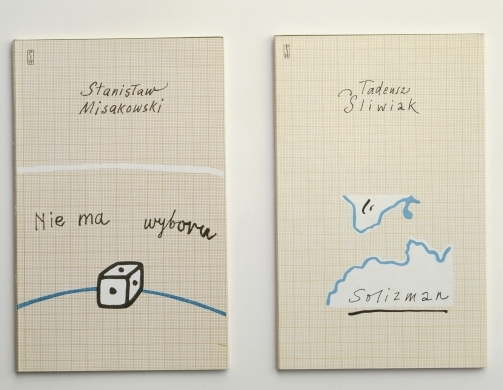 Stanisław
Misakowski
Nie ma wyboru
Tadeusz
Śliwiak
Solizman